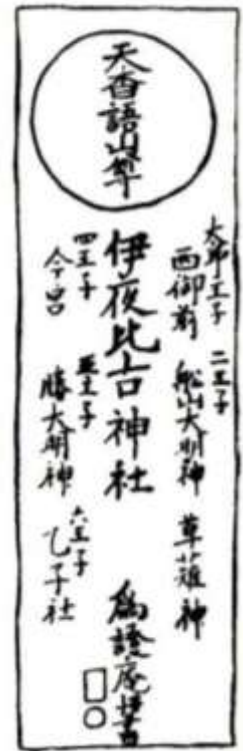 天香語山峯
太郎王子
西御前
二王子
船山大明神
草薙神
伊夜比古神社
四王子
今宮
五王子
勝大明神
六王子
乙子社